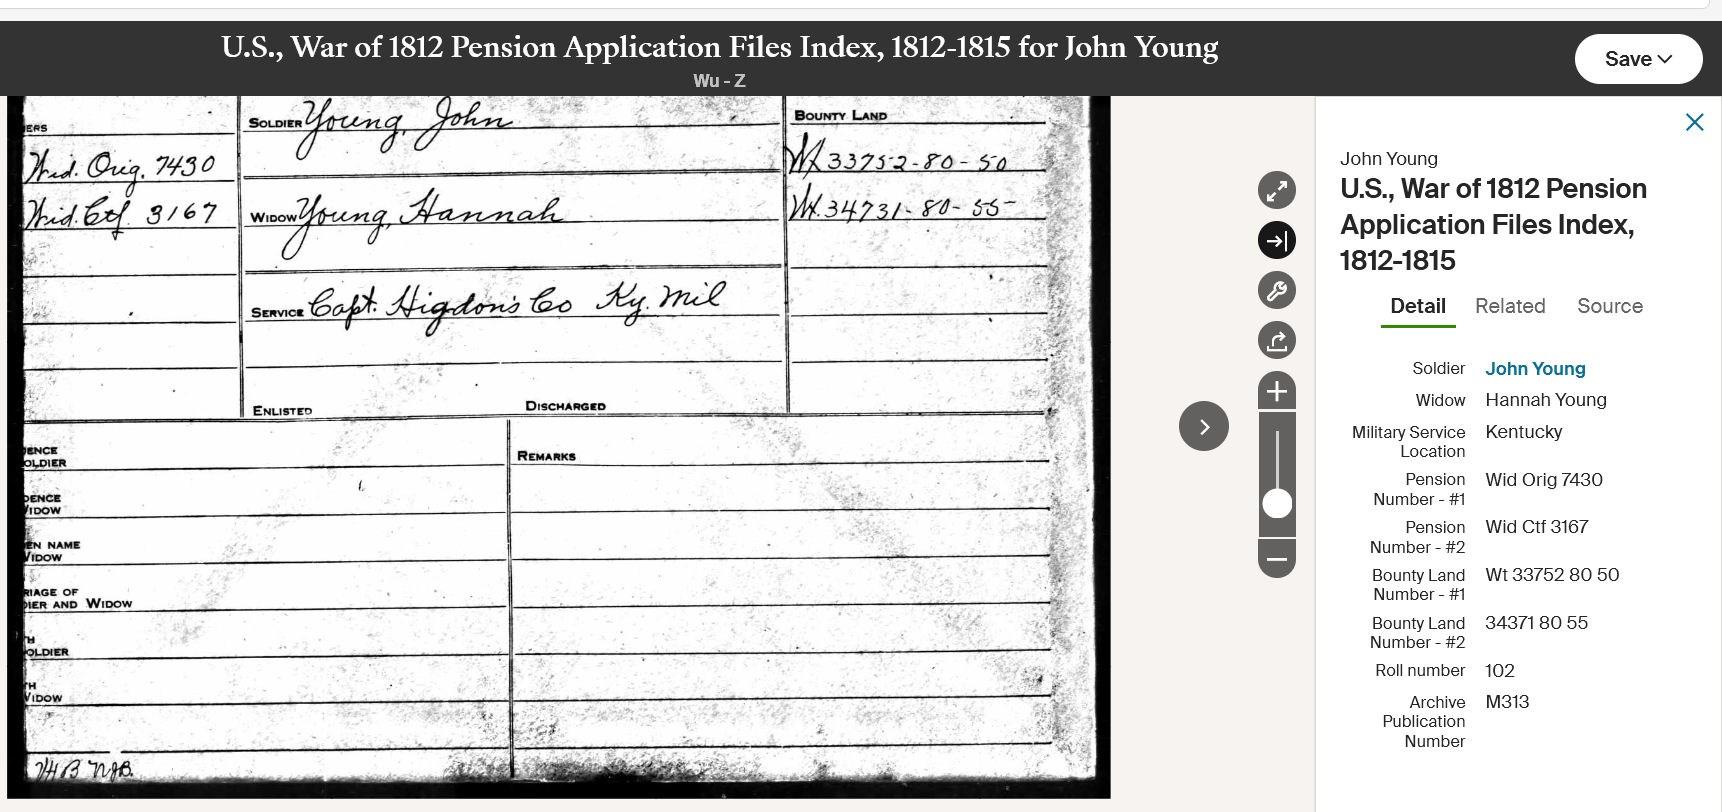 U.S., War of 1812 Pension Application Files Index, 1812-1815 for John Young
Wu - Z
Save
ERS
SOLDIER Young, John
BOUNTY LAND
Wid. Orig. 7430
Wt 33752-80-50
Wid. Ctf. 3167
WIDOW Young, Hannah
Wt. 34731-80-55
SERVICE Capt. Higdon's Co Ky. Mil
ENLISTED
DISCHARGED
ENCE
OLDIER
REMARKS
DENCE
IDOW
EN NAME
IDOW
RIAGE OF
IER AND WIDOW
H
OLDIER
H
IDOW
John Young
U.S., War of 1812 Pension
Application Files Index,
1812-1815
Detail Related Source
Soldier John Young
Widow Hannah Young
Military Service Kentucky
Location
Pension Wid Orig 7430
Number - #1
Pension Wid Ctf 3167
Number - #2
Bounty Land Wt 33752 80 50
Number - #1
Bounty Land 34371 80 55
Number - #2
Roll number 102
Archive M313
Publication
Number